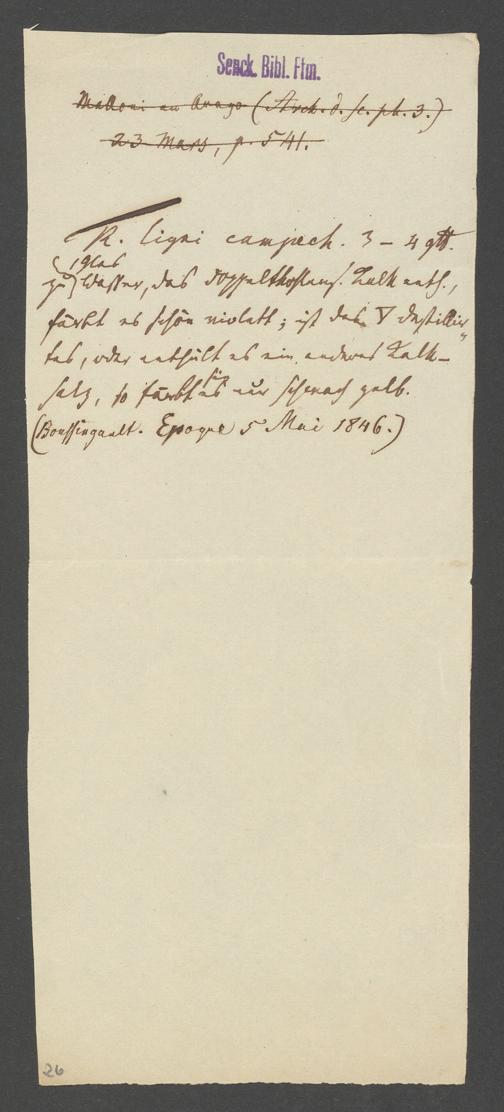 Senck. Bibl. Ffm.
Melloni an Arago (Arch. d. sc. ph. 3.)
23 Mars, p. 541.
R. ligni campech. 3 – 4 gtt.
1 Glas
zu Wasser, das doppeltkohlens. Kalk enth.,
färbt es schön violett; ist das ∇ destillir-
tes, oder enthält es ein anderes Kalk-
salz, so färbt es sich nur schwach gelb.
(Boussingault. Epoque 5 Mai 1846.)
26